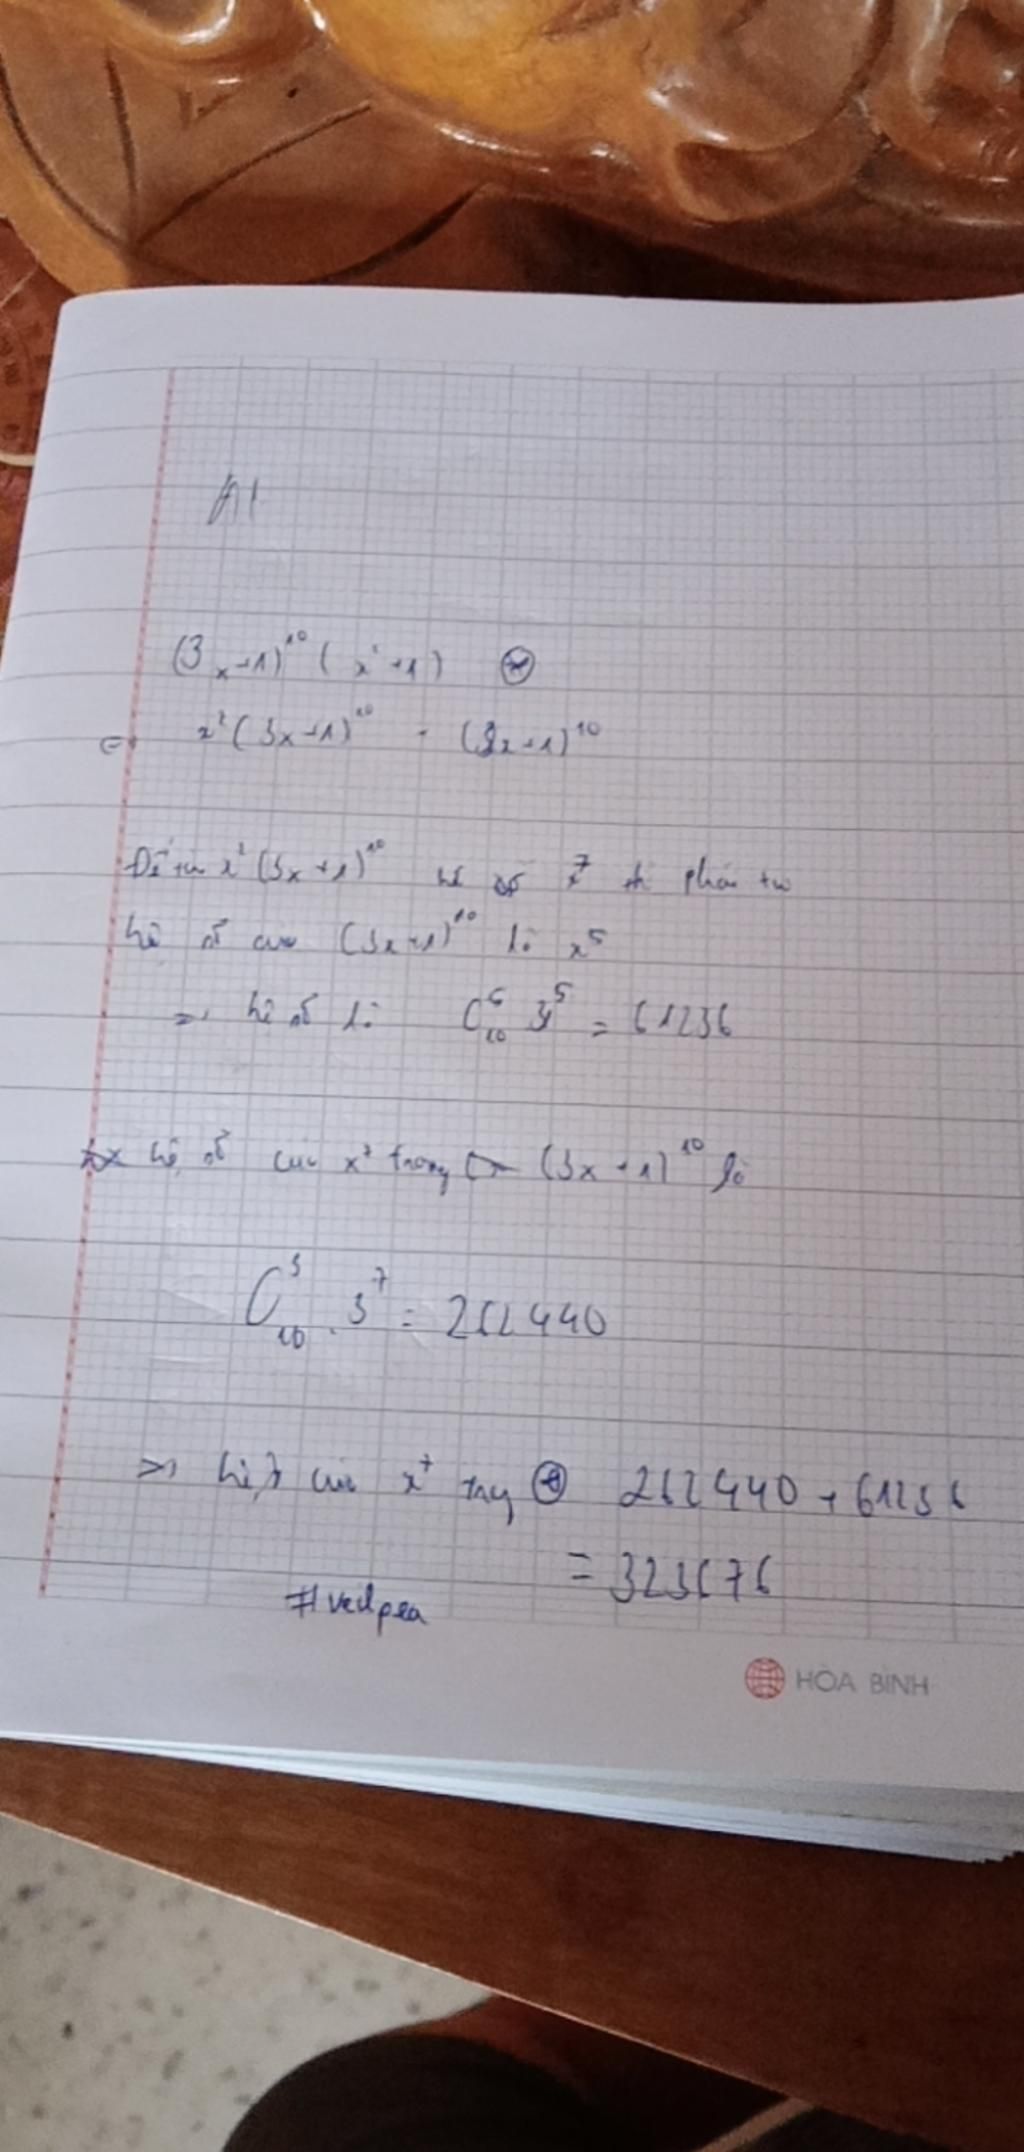 A1
(3x+1)^10 (x²+1) (*)
x²(3x+1)^10 + (3x+1)^10
Để x²(3x+1)^10 hệ số x^7 thì phải
hệ số của (3x+1)^10 là x^5
=> hệ số là C_10^5 3^5 = 61236
hệ số của x^7 trong (3x+1)^10 là
C_10^3 . 3^7 = 262440
=> hệ số của x^7 trong (*) 262440 + 61236
= 323676
HÒA BÌNH